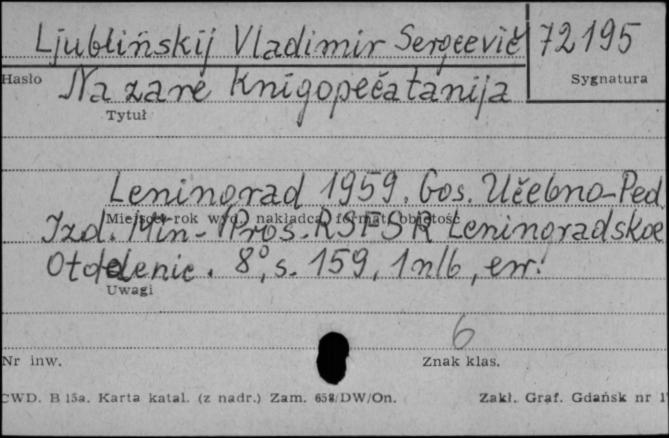 Ljublinskij Vladimir Sergeevič 72195
Hasło Na zare knigopečatanija Sygnatura
Tytuł
Leningrad 1959. Gos. Učebno-Ped.
Miejsce, rok wyd., nakładca, format, objętość
Izd. Min-Pros. RSFSR Leningradskoe
Otdelenie. 8°, s. 159, 1 nlb, err.
Uwagi
6
Nr inw. Znak klas.
CWD. B 15a. Karta katal. (z nadr.) Zam. 658/DW/On. Zakł. Graf. Gdańsk nr 1